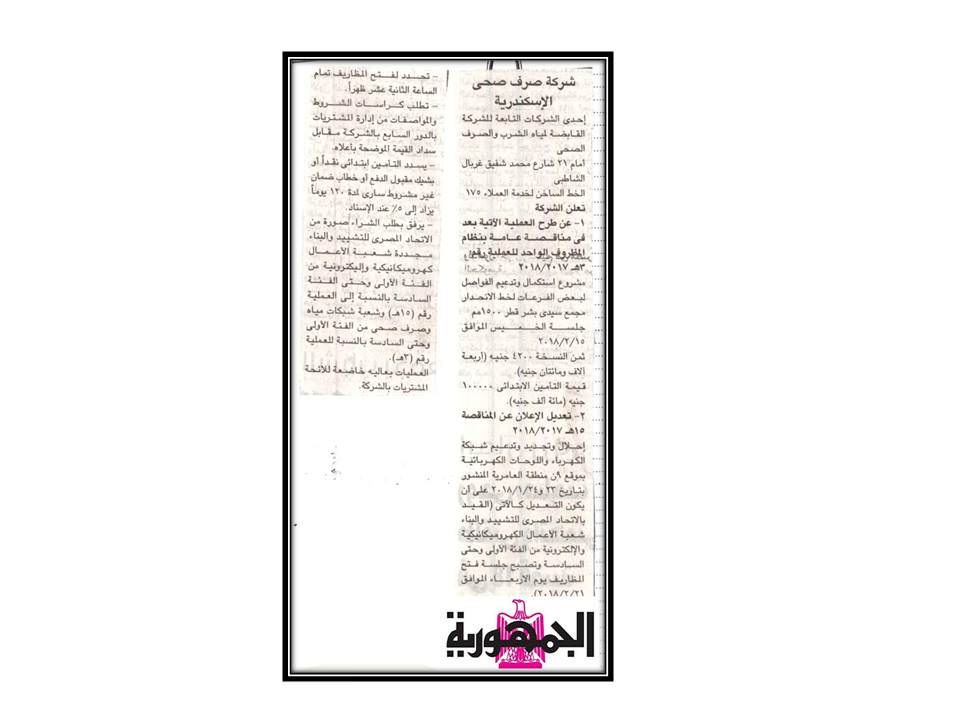 شركة صرف صحى
الإسكندرية
إحدى الشركات التابعة للشركة
القابضة لمياه الشرب والصرف
الصحى
أمام ٢١ شارع محمد شفيق غربال
الشاطبى
الخط الساخن لخدمة العملاء ١٧٥
تعلن الشركة
١- عن طرح العملية الآتية بعد
فى مناقصة عامة بنظام
المظروف الواحد للعملية رقم
٣هـ ٢٠١٨/٢٠١٧
مشروع استكمال وتدعيم الفواصل
لبعض الفرعات لخط الانحدار
مجمع سيدى بشر قطر ١٥٠٠مم
جلسة الخميس الموافق
٢٠١٨/٢/١٥
ثمن النسخة ٤٢٠٠ جنيه (أربعة
آلاف ومائتان جنيه).
قيمة التأمين الابتدائى ١٠٠٠٠٠
جنيه (مائة ألف جنيه).
٢- تعديل الإعلان عن المناقصة
١٥هـ ٢٠١٨/٢٠١٧
إحلال وتجديد وتدعيم شبكة
الكهرباء واللوحات الكهربائية
بموقع ٩ن منطقة العامرية المنشور
بتاريخ ٢٣ و٢٠١٨/١/٢٤ على أن
يكون التعديل كالآتى (القيد
بالاتحاد المصرى للتشييد والبناء
شعبة الأعمال الكهروميكانيكية
والإلكترونية من الفئة الأولى وحتى
السادسة وتصبح جلسة فتح
المظاريف يوم الأربعاء الموافق
٢٠١٨/٢/٢١).
- تحدد لفتح المظاريف تمام
الساعة الثانية عشر ظهراً.
- تطلب كراسات الشروط
والمواصفات من إدارة المشتريات
بالدور السابع بالشركة مقابل
سداد القيمة الموضحة بأعلاه.
- يسدد التأمين ابتدائى نقداً أو
بشيك مقبول الدفع أو خطاب ضمان
غير مشروط سارى لمدة ١٢٠ يوماً
يزاد إلى ٥٪ عند الإسناد.
- يرفق بطلب الشراء صورة من
الاتحاد المصرى للتشييد والبناء
مجددة شعبية الأعمال
كهروميكانيكية وإليكترونية من
الفئة الأولى وحتى الفئة
السادسة بالنسبة إلى العملية
رقم (١٥هـ) وشعبة شبكات مياه
وصرف صحى من الفئة الأولى
وحتى السادسة بالنسبة للعملية
رقم (٣هـ).
العمليات بعاليه خاضعة للائحة
المشتريات بالشركة.
الجمهورية